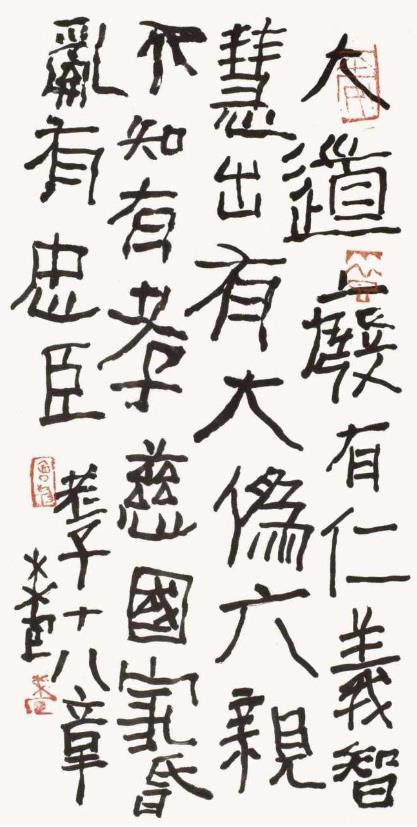 大道廢有仁義智
慧出有大偽六親
不和有孝慈國家昏
亂有忠臣
老子十八章